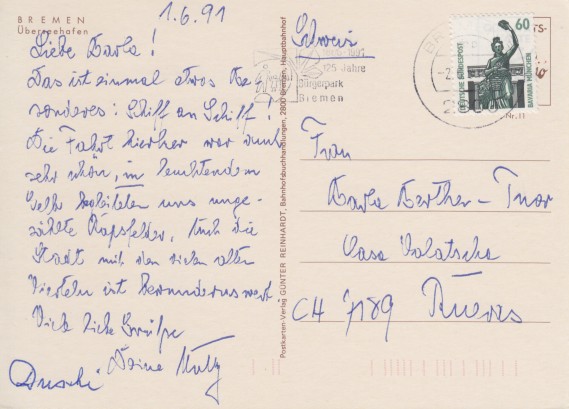 BREMEN
Überseehafen
1.6.91
Liebe Karla!
Das ist einmal etwas Be-
sonderes: Schiff an Schiff!
Die Fahrt hierher war auch
sehr schön, im leuchtenden
Gelb begleiteten uns unge-
zählte Rapsfelder. Auch die
Stadt mit den vielen alten
Vierteln ist bewundernswert.
Viele liebe Grüße
Deine
Postkarten-Verlag GÜNTER REINHARDT, Bahnhofsbuchhandlungen, 2800 Bremen, Hauptbahnhof
Schweiz
1866-1991
125 Jahre
Bürgerpark
Bremen
60
DEUTSCHE BUNDESPOST
BAVARIA MÜNCHEN
Nr. 11
Frau
Karla Berther-Tuor
Casa Valatscha
CH 7189 Rueras